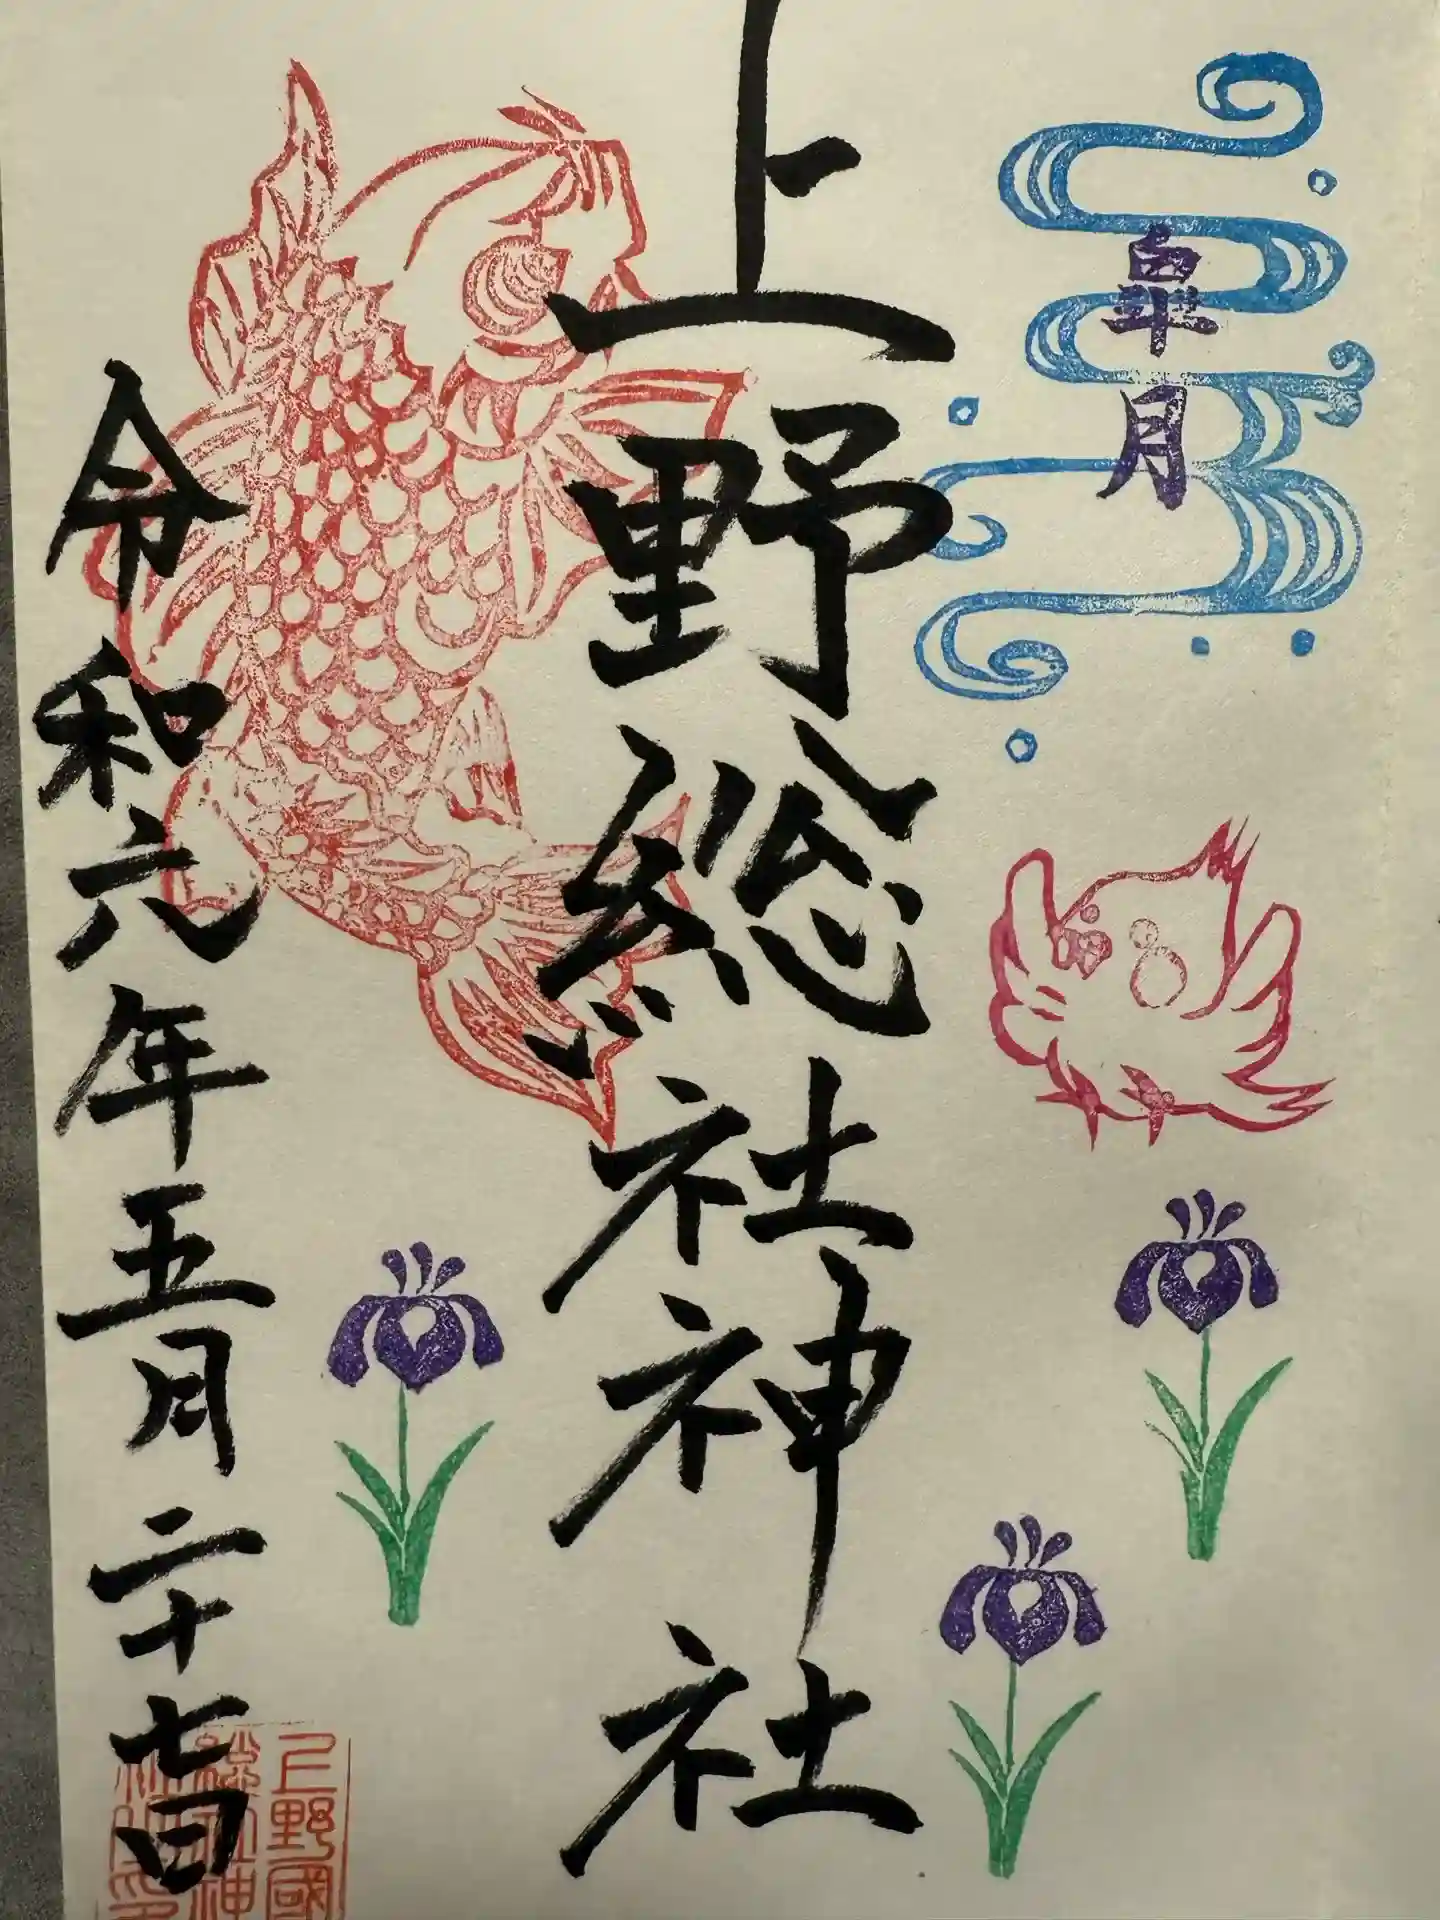 皐月
上野総社神社
令和六年五月二十七日
上野國
総社神